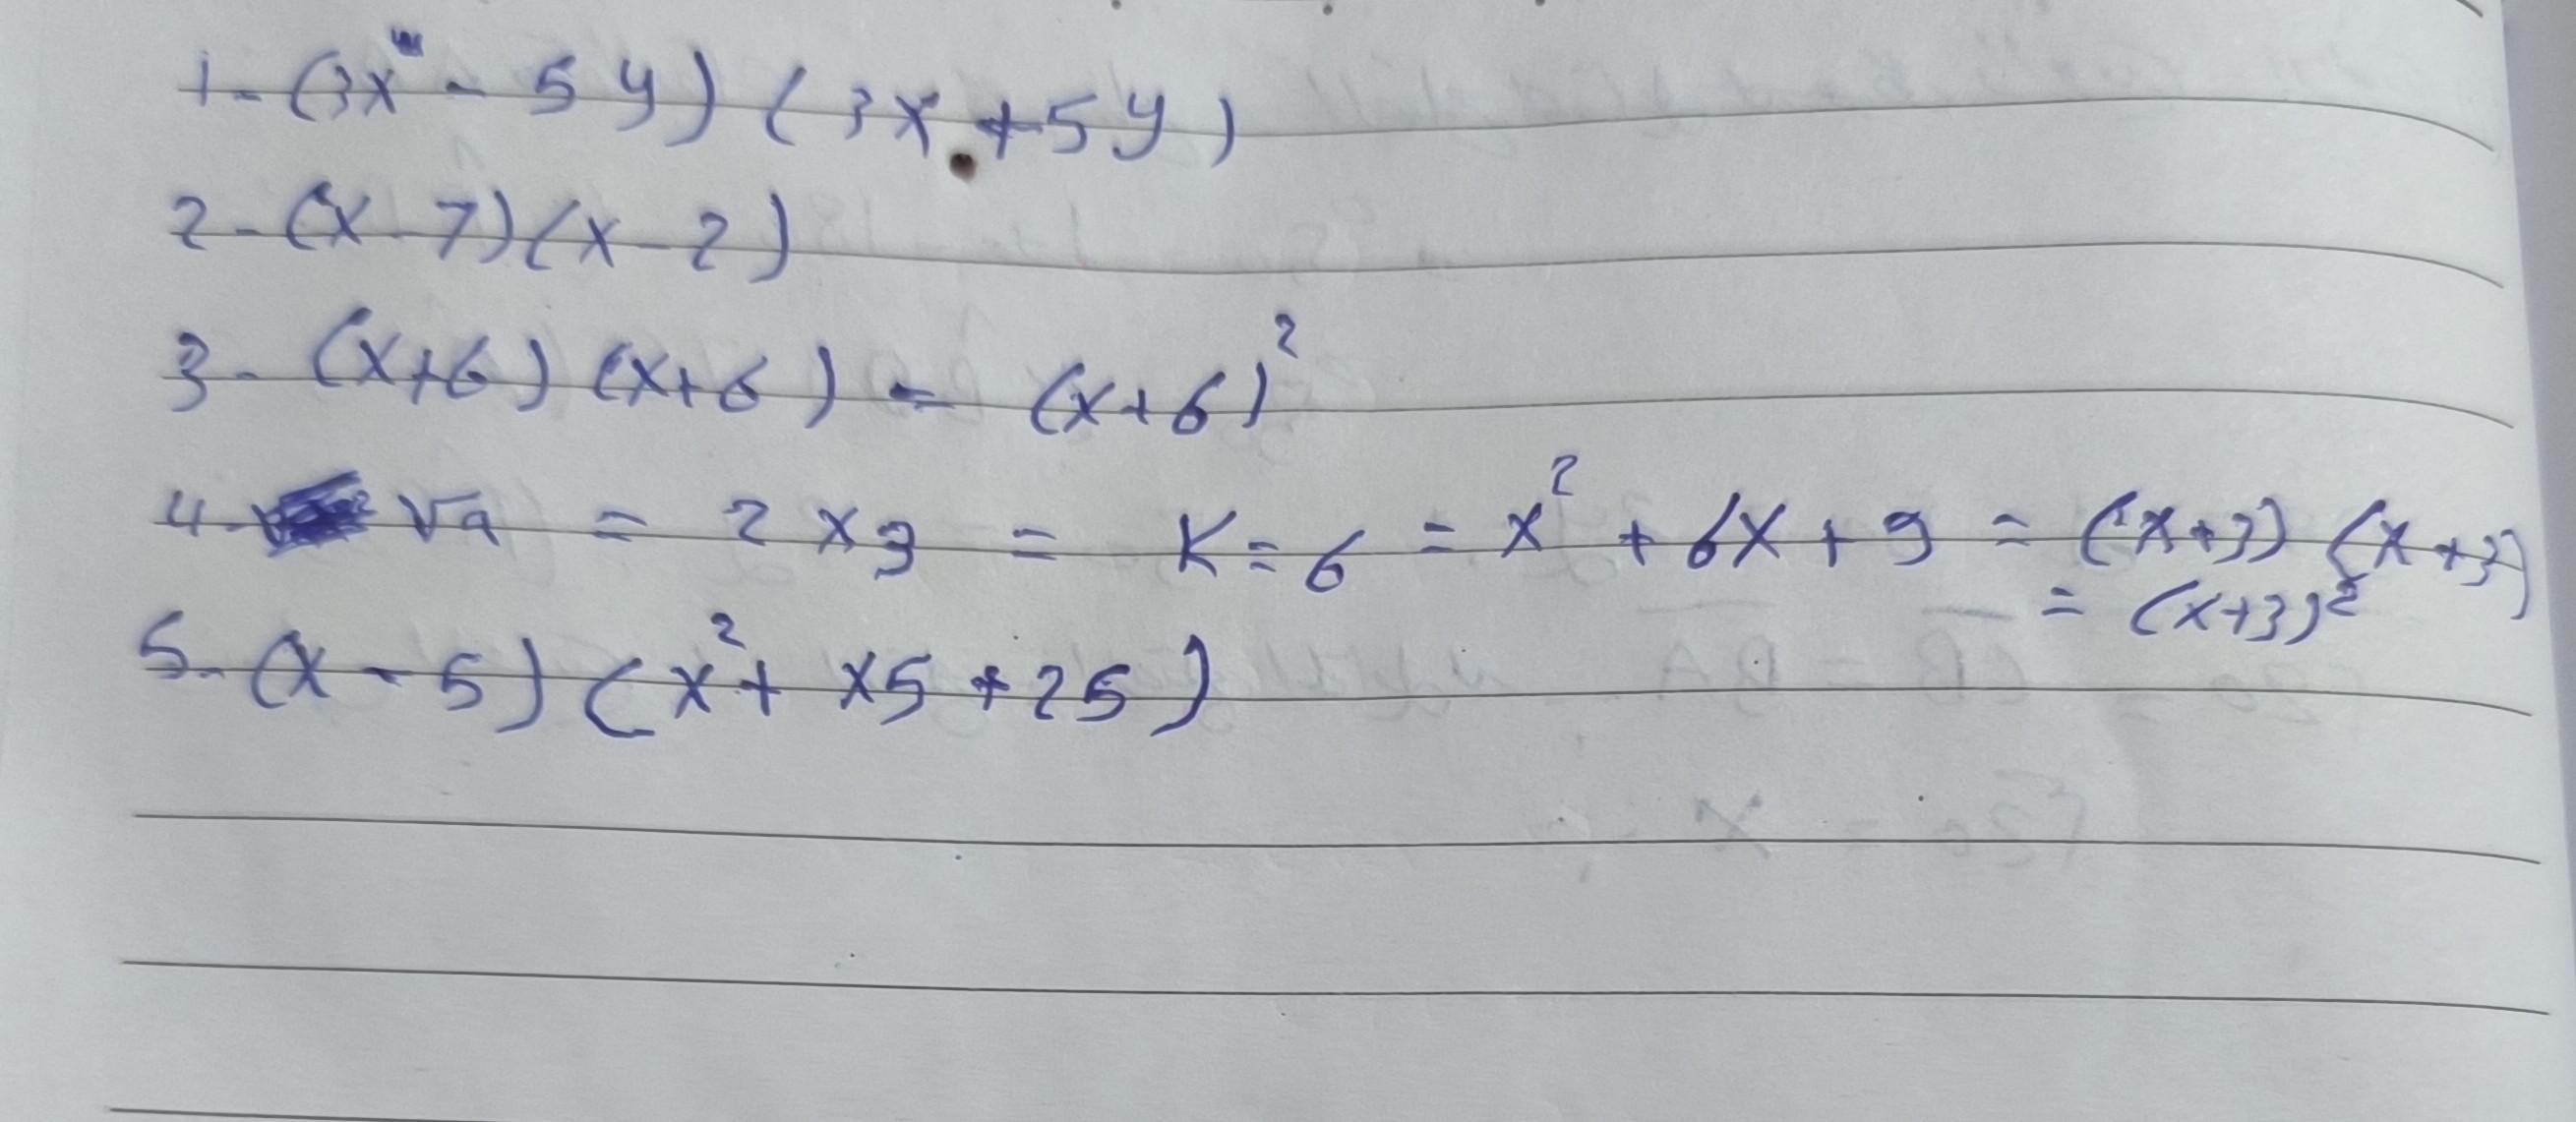 1- (3x - 5y) (3x + 5y)
2- (x - 7)(x - 2)
3- (x+6) (x+6) = (x+6)²
4- √9 = 2 × 3 = K = 6 = x² + 6x + 9 = (x+3) (x+3)
= (x+3)²
5- (x - 5) (x² + x5 + 25)